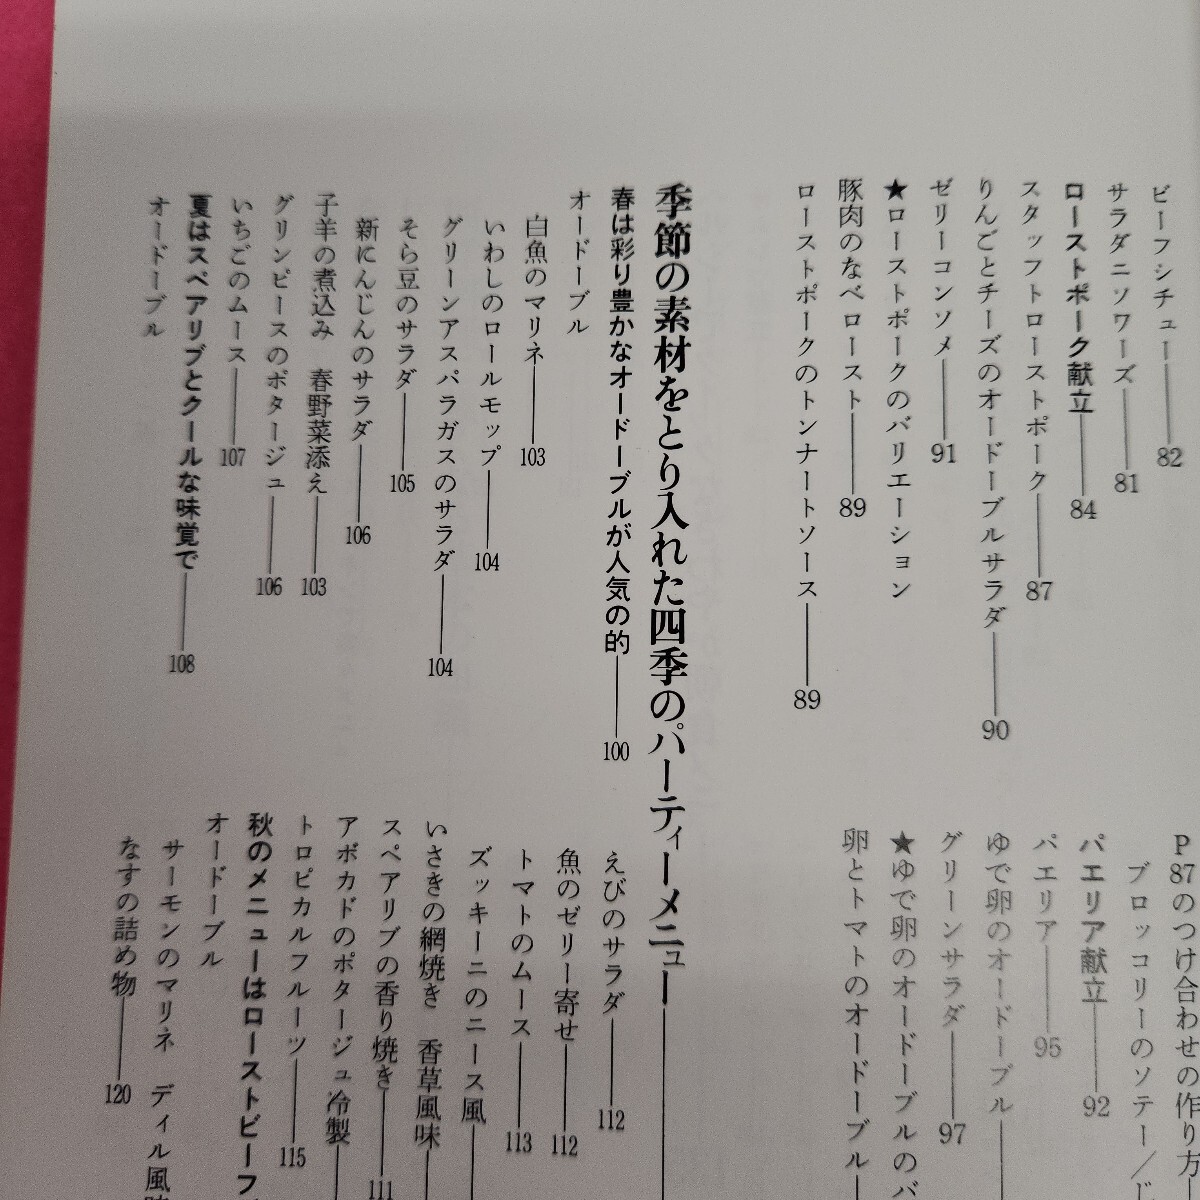 ビーフシチュー――82
サラダニソワーズ――81
ローストポーク献立――84
スタッフトローストポーク――87
りんごとチーズのオードーブルサラダ――90
ゼリーコンソメ――91
★ローストポークのバリエーション
豚肉のなべロースト――89
ローストポークのトンナートソース――89
P87のつけ合わせの作り方
ブロッコリーのソテー／
パエリア献立――92
パエリア――95
ゆで卵のオードーブル――
グリーンサラダ――97
★ゆで卵のオードーブルのバ
卵とトマトのオードーブル――
季節の素材をとり入れた四季のパーティーメニュー――
春は彩り豊かなオードーブルが人気の的――100
オードーブル
白魚のマリネ――103
いわしのロールモップ――104
グリーンアスパラガスのサラダ――104
そら豆のサラダ――105
新にんじんのサラダ――106
子羊の煮込み 春野菜添え――103
グリンピースのポタージュ――106
いちごのムース――107
夏はスペアリブとクールな味覚で――108
オードーブル
えびのサラダ――112
魚のゼリー寄せ――112
トマトのムース――113
ズッキーニのニース風――
いさきの網焼き 香草風味――
スペアリブの香り焼き――111
アボカドのポタージュ冷製――
トロピカルフルーツ――115
秋のメニューはローストビーフ
オードーブル
サーモンのマリネ ディル風味
なすの詰め物――120